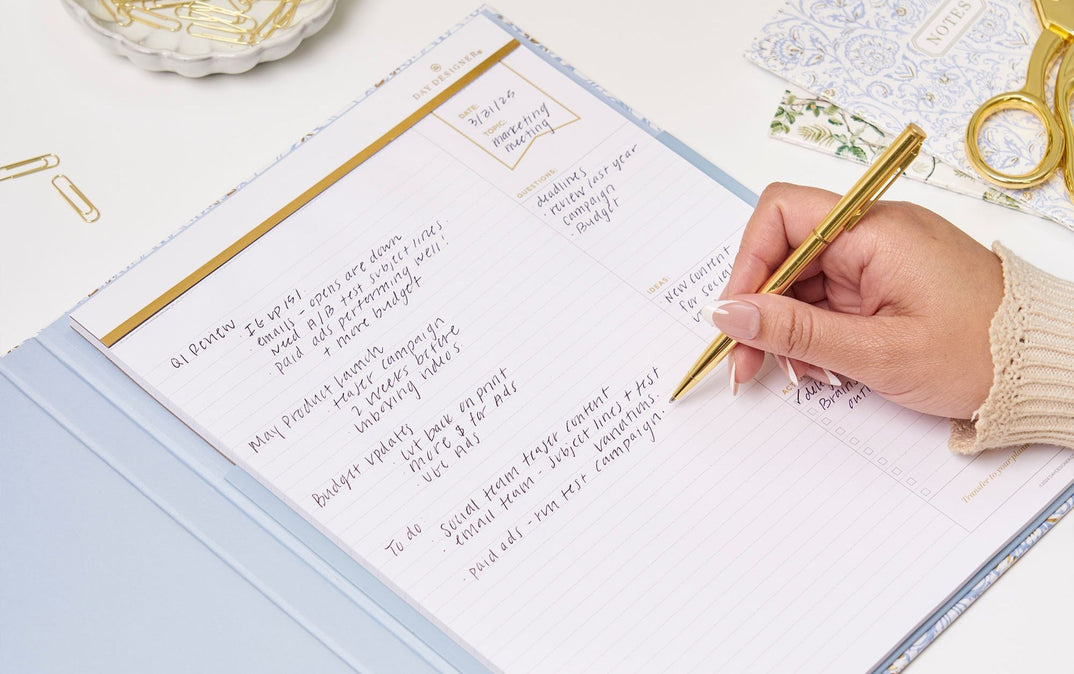 NOTES
DAY DESIGNER
DATE:
3/31/25
TOPIC:
marketing
meeting
QUESTIONS:
deadlines
· review last year
campaign
Budget
IDEAS:
· New content
for social
Q1 Review · IG up 15%!
· emails - opens are down
need A/B test subject lines
· paid ads performing well!
+ more budget
May Product Launch
· teaser campaign
2 weeks before
unboxing videos
Budget updates
· cut back on print
more $ for Ads
· UGC Ads
To do
· Social team teaser content
· email team - subject lines + test
variations.
· paid ads - run test campaign.
out
Transfer to your